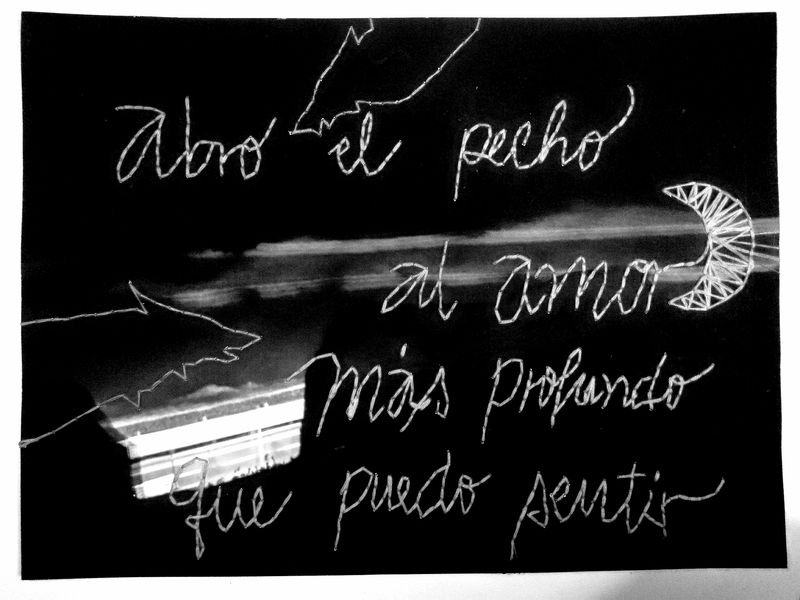 abro el pecho
al amor
más profundo
que puedo sentir